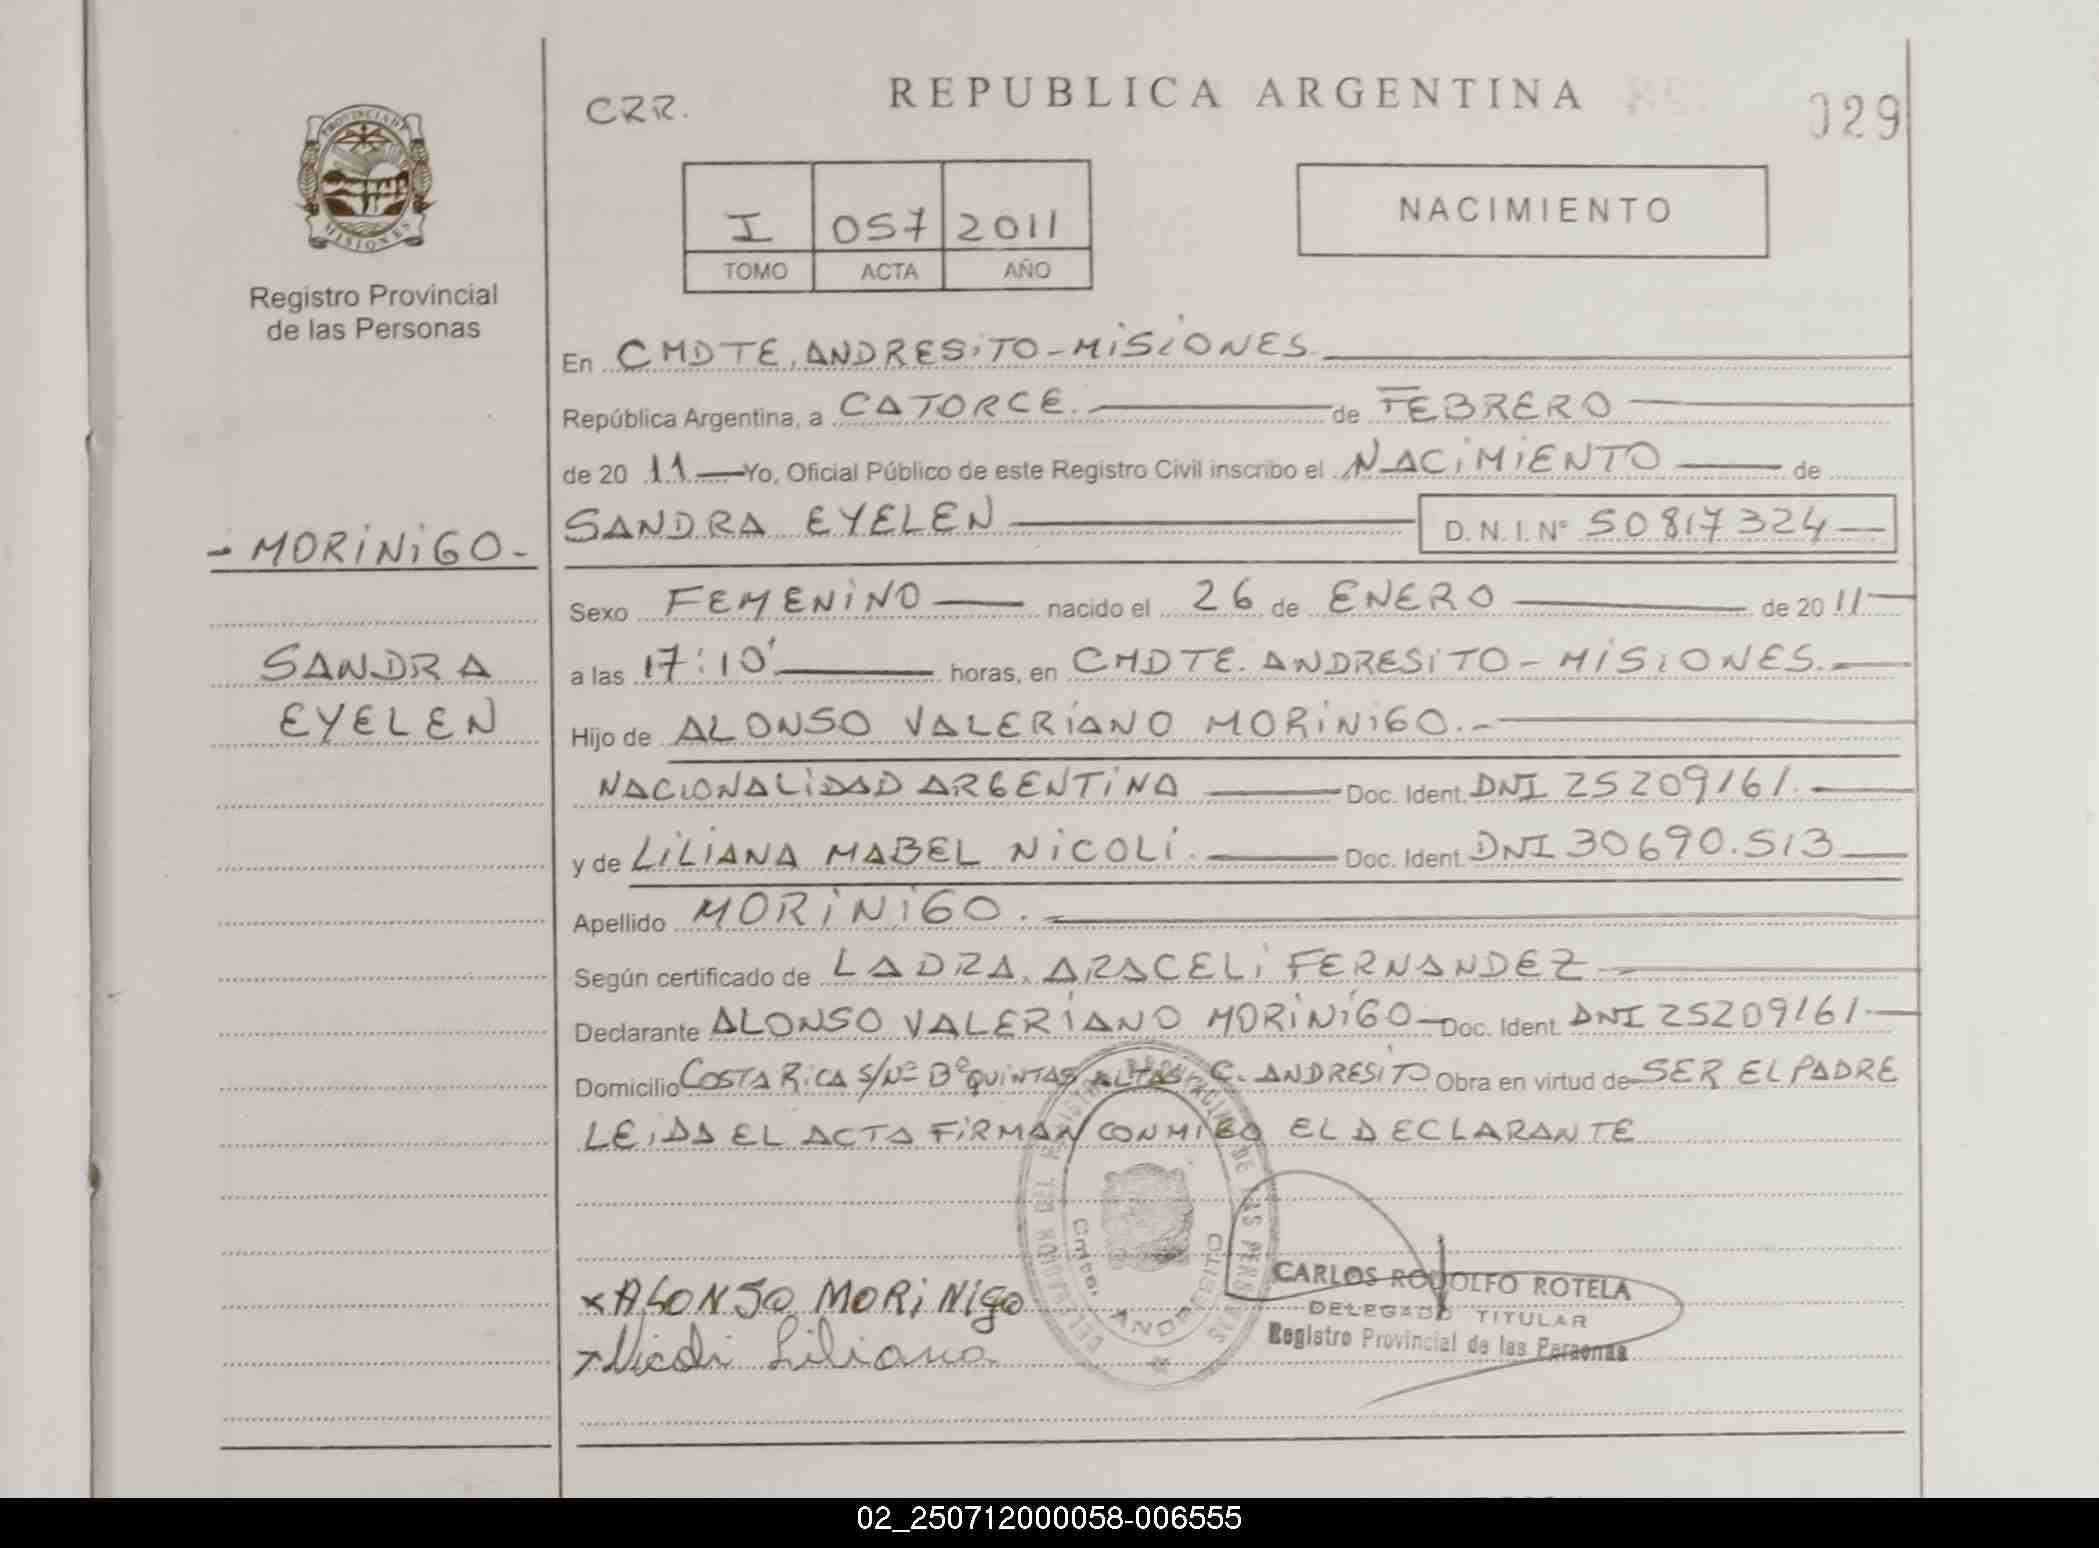 REPUBLICA ARGENTINA
CRR.
029
PROVINCIA DE
MISIONES
Registro Provincial
de las Personas
I 057 2011
TOMO ACTA AÑO
NACIMIENTO
En CMDTE. ANDRESITO - MISIONES
República Argentina, a CATORCE. de FEBRERO
de 20 11 Yo, Oficial Público de este Registro Civil inscribo el NACIMIENTO de
SANDRA EYELEN D.N.I. Nº 50817324
- MORINIGO -
SANDRA
EYELEN
Sexo FEMENINO nacido el 26 de ENERO de 20 11
a las 17:10' horas, en CMDTE. ANDRESITO - MISIONES.
Hijo de ALONSO VALERIANO MORINIGO. -
NACIONALIDAD ARGENTINA Doc. Ident. DNI 25209161.
y de LILIANA MABEL NICOLI. Doc. Ident. DNI 30690.513
Apellido MORINIGO.
Según certificado de LA DRA. ARACELI FERNANDEZ
Declarante ALONSO VALERIANO MORINIGO Doc. Ident. DNI 25209161
Domicilio COSTA RICA S/Nº Bº QUINTAS ALTAS C. ANDRESITO Obra en virtud de SER EL PADRE
LEIDA EL ACTA FIRMAN CONMIGO EL DECLARANTE
DEL REGISTRO PROVINCIAL DE LAS PERSONAS
Cmte. ANDRESITO
x ALONSO MORINIGO
x Nicoli Liliana
CARLOS RODOLFO ROTELA
DELEGADO TITULAR
Registro Provincial de las Personas
02_250712000058-006555